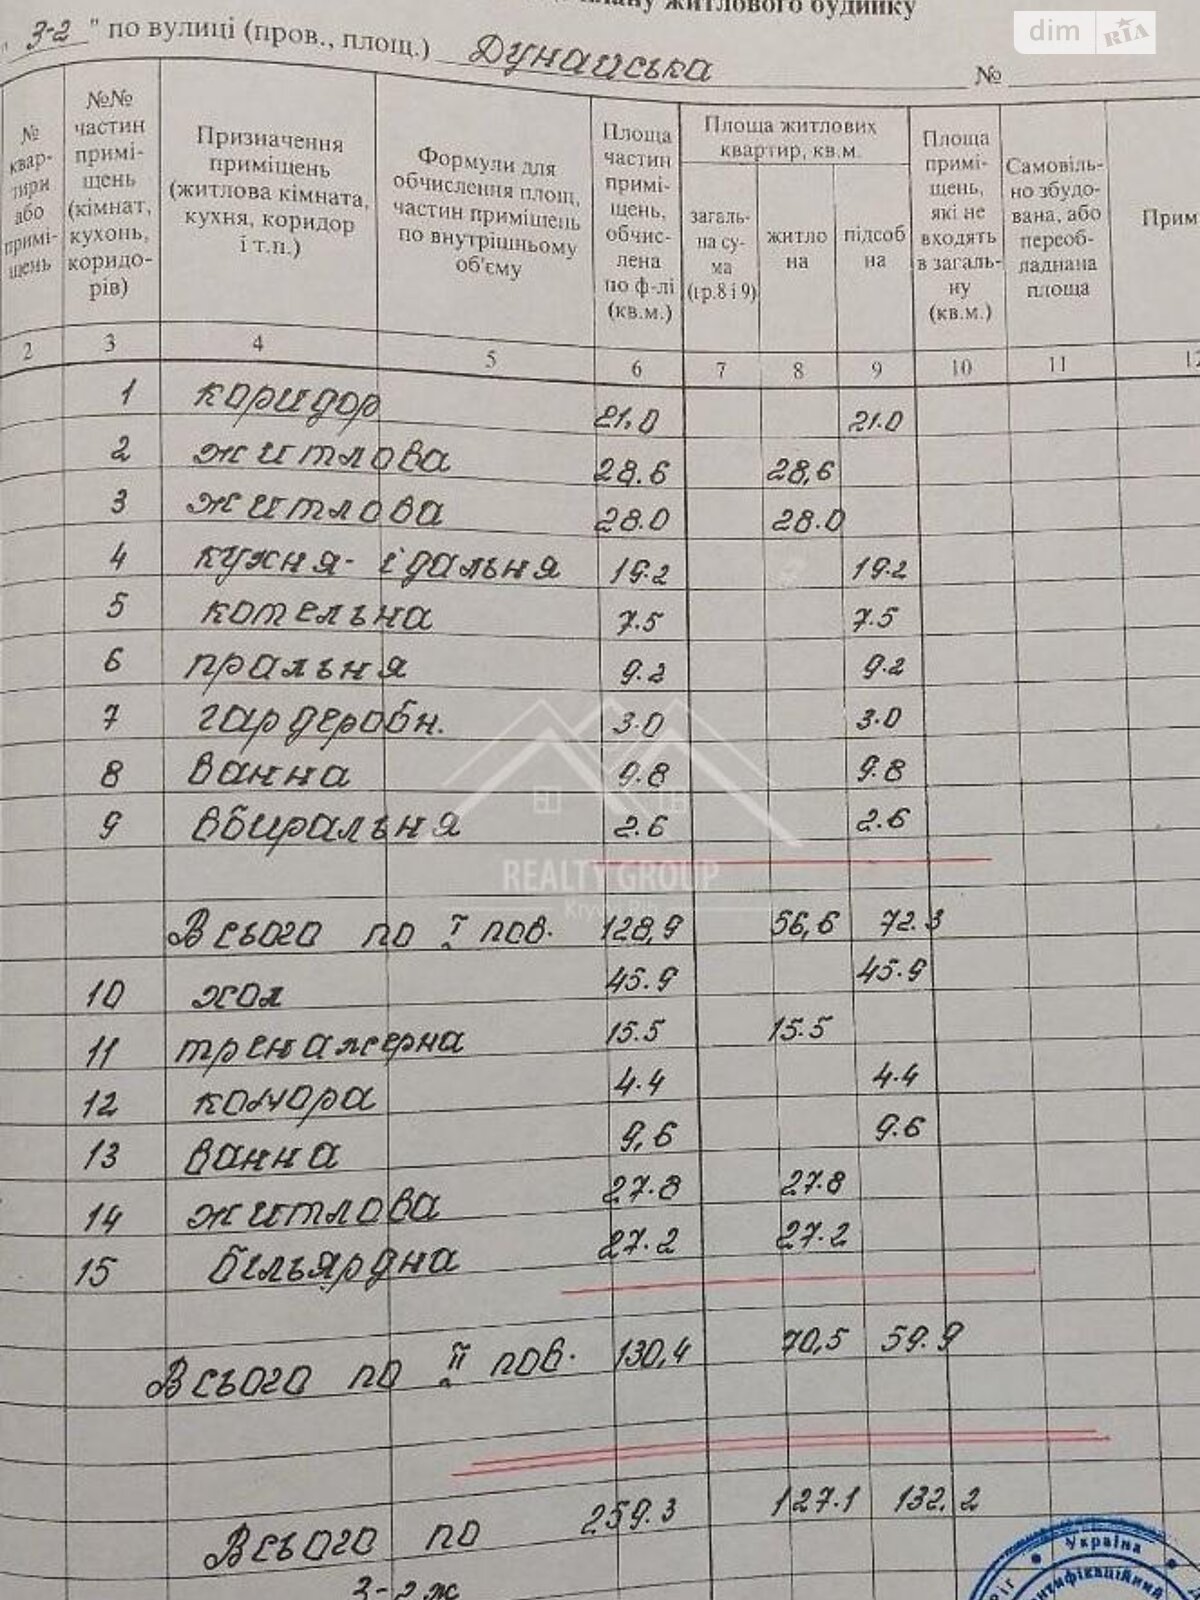 плану житлового будинку
dim RIA
" 3-2 " по вулиці (пров., площ.) Дунайська №
№ квар-тири або примі-щень
№№ частин примі-щень (кімнат, кухонь, коридо-рів)
Призначення приміщень (житлова кімната, кухня, коридор і т.п.)
Формули для обчислення площ, частин приміщень по внутрішньому об'єму
Площа частин примі-щень, обчис-лена по ф-лі (кв.м.)
Площа житлових квартир, кв.м.
загаль-на су-ма (гр.8 і 9)
житло на
підсоб на
Площа примі-щень, які не входять в загаль-ну (кв.м.)
Самовіль-но збудо-вана, або переоб-ладнана площа
Прим
2 3 4 5 6 7 8 9 10 11 12
1 коридор 21,0 21.0
2 житлова 28.6 28,6
3 житлова 28.0 28.0
4 кухня-їдальня 19.2 19.2
5 котельна 7.5 7.5
6 пральня 9.2 9.2
7 гардеробн. 3.0 3.0
8 ванна 9.8 9.8
9 вбиральня 2.6 2.6
REALTY GROUP
Всього по I пов. 128,9 56,6 72.3
10 хол 45.9 45.9
11 тренажерна 15.5 15.5
12 комора 4.4 4.4
13 ванна 9,6 9.6
14 житлова 27.8 27.8
15 більярдна 27.2 27.2
Всього по II пов. 130,4 70,5 59.9
Всього по 259.3 127.1 132.2
3-2ж
Україна